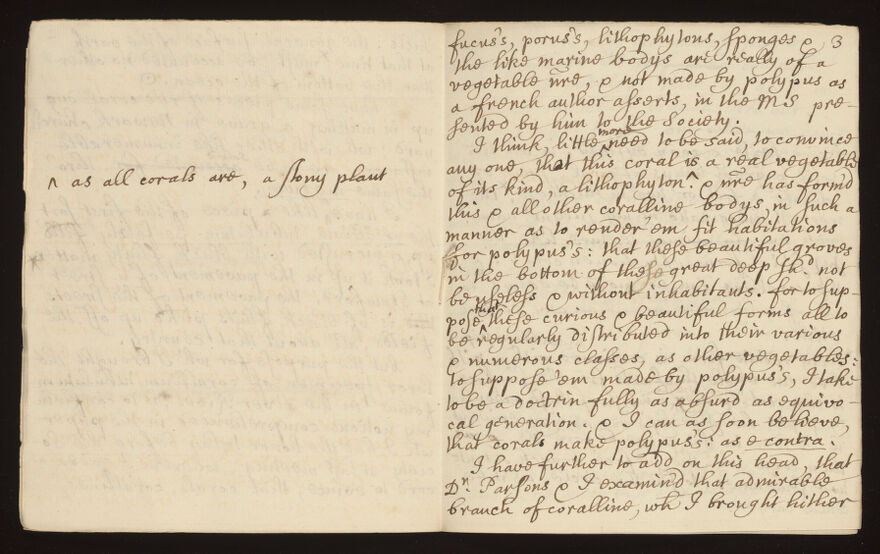 ^ as all corals are, a stony plant
fucus's, porus's, lithophytons, sponges & 3
the like marine bodys are really of a
vegetable nr̃e, & not made by polypus as
a french author asserts, in the MS pre-
sented by him to the Society.
I think, little more need to be said, to convince
any one, that this coral is a real vegetable
of its kind, a lithophyton^. & nr̃e has form'd
this & all other coralline bodys, in such a
manner as to render 'em fit habitations
for polypus's: that these beautiful groves
in the bottom of these great deep sh.d not
be useless & without inhabitants. for to sup-
pose that these curious & beautiful forms all to
be regularly distributed into their various
& numerous classes, as other vegetables:
to suppose 'em made by polypus's, I take
to be a doctrin fully as absurd as equivo-
cal generation. & I can as soon believe,
that corals make polypus's: as e contra.
I have further to add on this head, that
Dr. Parsons & I examind that admirable
branch of coralline, wh I brought hither